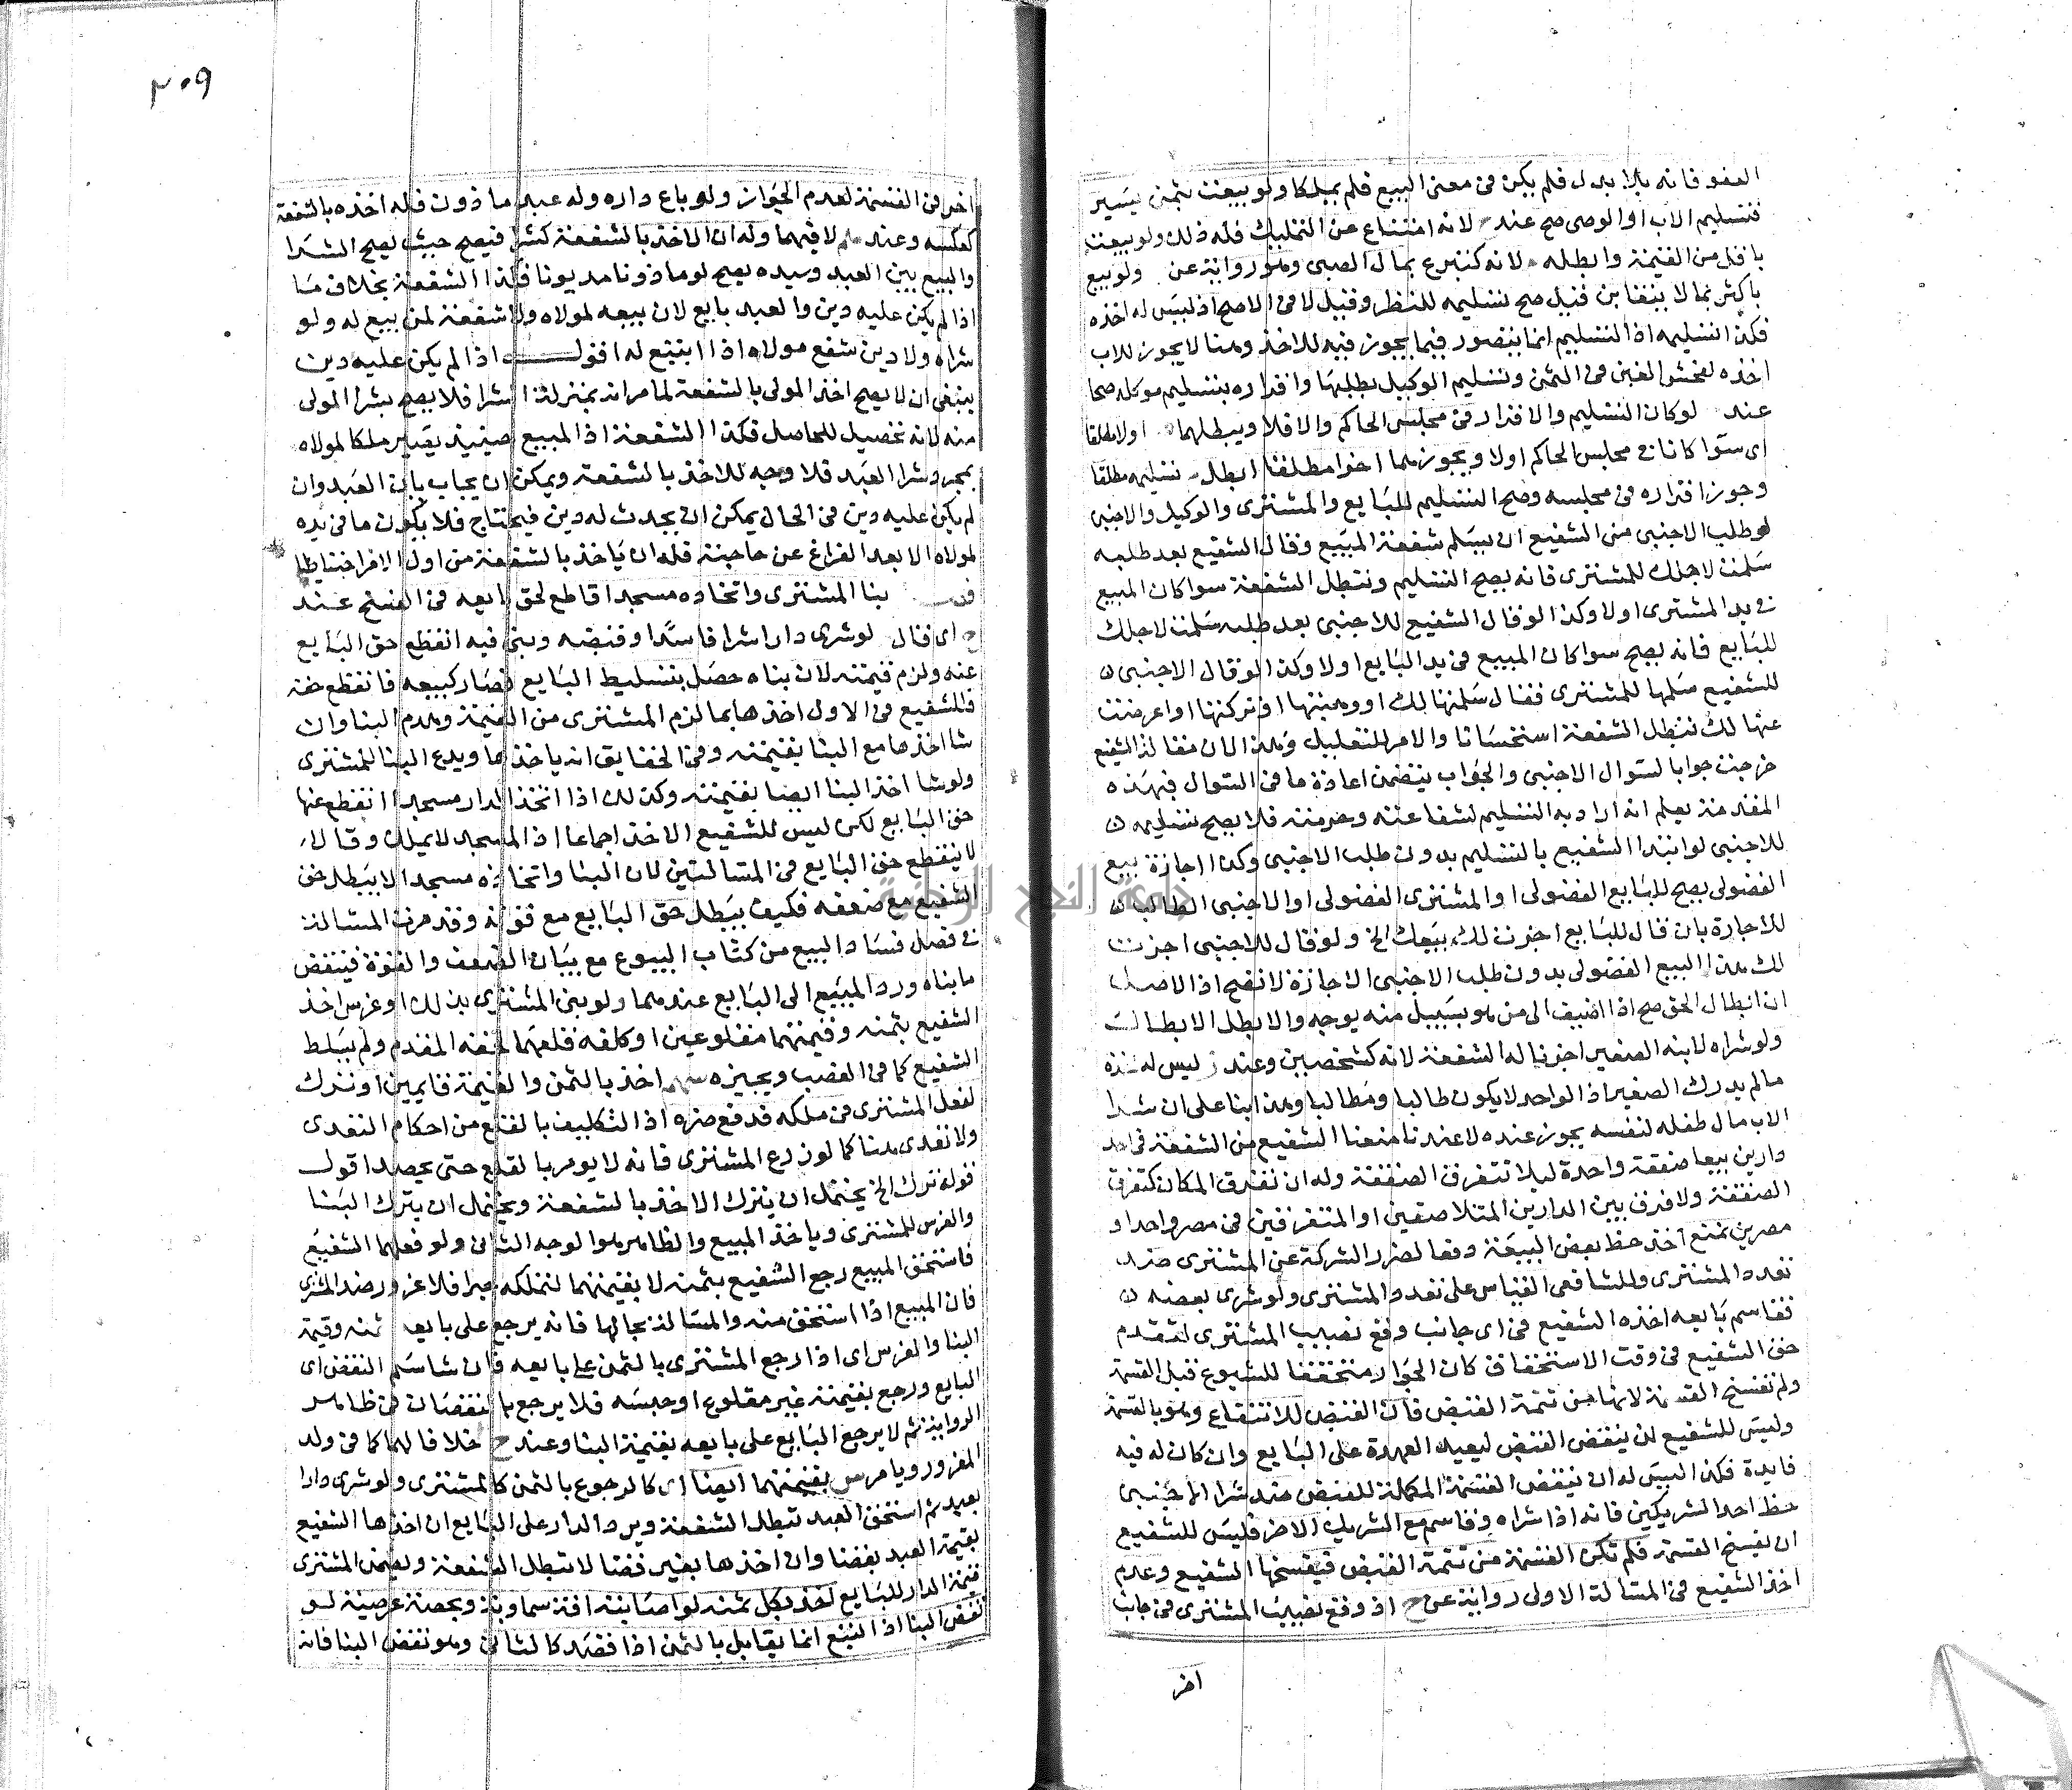 العفو فانه بلا بدل فلم يكن فى معنى البيع فلم يملكا ولو بيعت بثمن يسير
فتسليم الاب او الوصى صح عند لانه امتناع عن التمليك فله ذلك ولو بيعت
باقل من القيمة وابطله لانه كتبرع بمال الصبى وهو رواية عن ولو بيع
باكثر بما لا يتغابن قيل صح تسليمه للنظر وقيل لا فى الاصح اذ ليس له اخذه
فكذا تسليمه اذ التسليم انما يتصور فيما يجوز فيه للاخذ وهنا لا يجوز للاب
اخذه لفحش الغبن فى الثمن وتسليم الوكيل بطلبها واقراره بتسليم موكله صحا
عند لو كان التسليم والاقرار فى مجلس الحاكم والا فلا ويبطلهما اولا مطلقا
اى سوا كانا فى مجلس الحاكم اولا ويجوزهما اخرا مطلقا ابطل تسليمه مطلقا
وجوز اقراره فى مجلسه وصح التسليم للبايع والمشترى والوكيل والاجنبى
لو طلب الاجنبى من الشفيع ان يسلم شفعة المبيع وقال الشفيع بعد طلبه
سلمت لاجلك للمشترى فانه يصح التسليم وتبطل الشفعة سوا كان المبيع
فى يد المشترى اولا وكذا لو قال الشفيع للاجنبى بعد طلبه سلمت لاجلك
للبايع فانه يصح سوا كان المبيع فى يد البايع اولا وكذا لو قال الاجنبى
للشفيع سلمها للمشترى فقال سلمتها لك او وهبتها او تركتها او اعرضت
عنها لك تبطل الشفعة استحسانا والامر للتعليل وهذا لان مقالة الشفيع
خرجت جوابا لسوال الاجنبى والجواب يتضمن اعادة ما فى السوال فبهذه
المقدمة يعلم انه اراد به التسليم لشفاعته وحرمته فلا يصح تسليمه
للاجنبى لو ابتدا الشفيع بالتسليم بدون طلب الاجنبى وكذا اجازة بيع
الفضولى يصح للبايع الفضولى او المشترى الفضولى او الاجنبى الطالبان
للاجازة بان قال للبايع اجزت لك بيعك الخ ولو قال للاجنبى اجزت
لك هذا البيع الفضولى بدون طلب الاجنبى الاجازة لا تصح اذ الاصل
ان ابطال الحق صح اذا اضيف الى من هو بسبيل منه بوجه والا بطل الابطال
ولو شراه لابنه الصغير اجزنا له الشفعة لانه كشخصين وعند ليس له هذه
مالم يدرك الصغير اذ الواحد لا يكون طالبا ومطالبا وهذا بنا على ان شرا
الاب مال طفله لنفسه يجوز عنده لا عندنا منعنا الشفيع من الشفعة فى احد
دارين بيعا صفقة واحدة ليلا تتفرق الصفقة وله ان تفرق المكان كتفرق
الصفقة ولا فرق بين الدارين المتلاصقين او المتفرقين فى مصر واحد او
مصرين نمنع اخذ حظ بعض البيعة دفعا لضرر الشركة عن المشترى ضد
تعدد المشترى وللشافعى القياس على تعدد المشترى ولو شرى بعضه
فقاسم بايعه اخذه الشفيع فى اى جانب وقع نصيب المشترى لتقدم
حق الشفيع فى وقت الاستحقاق كان الجوار متحققا للشيوع قبل القسمة
ولم تفسخ القسمة لانها من تتمة القبض فان القبض للانتفاع وهو بالقسمة
وليس للشفيع ان ينقض القبض ليعيد العهدة على البايع وان كان له فيه
فايدة فكذا ليس له ان ينقض القسمة المكملة للقبض ضد شرا الاجنبى
حظ احد الشريكين فانه اذا شراه وقاسم مع الشريك الاخر فليس للشفيع
ان يفسخ القسمة فلم تكن القسمة من تتمة القبض فيفسخها الشفيع وعدم
اخذ الشفيع فى المسالة الاولى رواية عن ح اذ وقع نصيب المشترى فى جانب
اخر
٢٠٩
اخر فى القسمة لعدم الجواز ولو باع داره وله عبد ماذون فله اخذه بالشفعة
كعكسه وعند لا فيهما وله ان الاخذ بالشفعة كشرا فيصح حيث يصح الشرا
والبيع بين العبد وسيده يصح لو ماذونا مديونا فكذا الشفعة بخلاف ما
اذا لم يكن عليه دين والعبد بايع لان بيعه لمولاه ولا شفعة لمن بيع له ولو
شراه ولا دين شفع مولاه اذا ابتيع له اقول اذا لم يكن عليه دين
ينبغى ان لا يصح اخذ المولى بالشفعة لما مر انه بمنزلة الشرا فلا يصح بشرا المولى
منه لانه تحصيل للحاصل فكذا الشفعة اذ المبيع حينيذ يصير ملكا لمولاه
بمجرد شرا العبد فلا وجه للاخذ بالشفعة ويمكن ان يجاب بان العبد وان
لم يكن عليه دين فى الحال يمكن ان يحدث له دين فيحتاج فلا يكون ما فى يده
لمولاه الا بعد الفراغ عن حاجته فله ان ياخذ بالشفعة من اول الامر احتياطا
بنا المشترى واتخاذه مسجدا قاطع لحق بايعه فى الفسخ عند
ح اى قال لو شرى دارا شرا فاسدا وقبضه وبنى فيه انقطع حق البايع
عنه ولزم قيمته لان بناه حصل بتسليط البايع فصار كبيعه فانقطع حقه
فللشفيع فى الاول اخذها بما لزم المشترى من القيمة وهدم البنا وان
شا اخذها مع البنا بقيمته وفى الحقايق انه ياخذها ويدع البنا للمشترى
ولو شا اخذ البنا ايضا بقيمته وكذلك اذا اتخذ الدار مسجدا انقطع عنها
حق البايع لكن ليس للشفيع الاخذ اجماعا اذ المسجد لا يملك وقالا
لا ينقطع حق البايع فى المسالتين لان البنا واتخاذه مسجدا لا يبطل حق
الشفيع مع ضعفه فكيف يبطل حق البايع مع قوته وقد مرت المسالة
فى فصل فساد البيع من كتاب البيوع مع بيان الضعف والقوة فينقض
ما بناه ورد المبيع الى البايع عندهما ولو بنى المشترى بذلك او غرس اخذ
الشفيع بثمنه وقيمتهما مقلوعين او كلفه قلعهما لحقه المقدم ولم يسلط
الشفيع كما فى الغصب ويجيزه اخذ بالثمن والقيمة قايمين او ترك
لفعل المشترى فى ملكه فدفع ضره اذ التكليف بالقلع من احكام التعدى
ولا تعدى هنا كما لو زرع المشترى فانه لا يومر بالقلع حتى يحصد اقول
قوله ترك الخ يحتمل ان يترك الاخذ بالشفعة ويحتمل ان يترك البنا
والغرس للمشترى وياخذ المبيع والظاهر هو الوجه الثانى ولو فعلهما الشفيع
فاستحق المبيع رجع الشفيع بثمنه لا بقيمتهما لتملكه جبرا فلا غرور ضد المشترى
فان المبيع اذا استحق منه والمسالة بحالها فانه يرجع على بايعه ثمنه وقيمة
البنا والغرس اى اذا رجع المشترى بالثمن على بايعه فان شا سلم النقض اى
البايع ورجع بقيمته غير مقلوع او حبسه فلا يرجع بالنقصان فى ظاهر
الرواية ثم لا يرجع البايع على بايعه بقيمة البنا وعند ح خلافا لهما كما فى ولد
المغرور ويامر بقيمتهما ايضا اى كالرجوع بالثمن كالمشترى ولو شرى دارا
بعبد ثم استحق العبد تبطل الشفعة ويرد الدار على البايع ان اخذها الشفيع
بقيمة العبد بقضا وان اخذها بغير قضا لا تبطل الشفعة ويضمن المشترى
قيمة الدار للبايع اخذ بكل ثمنه لو اصابته افة سماوية وبحصة عرصته لو
نقض البنا اذ التبع انما يقابل بالثمن اذا قصد كالثانى وهو نقض البنا فانه